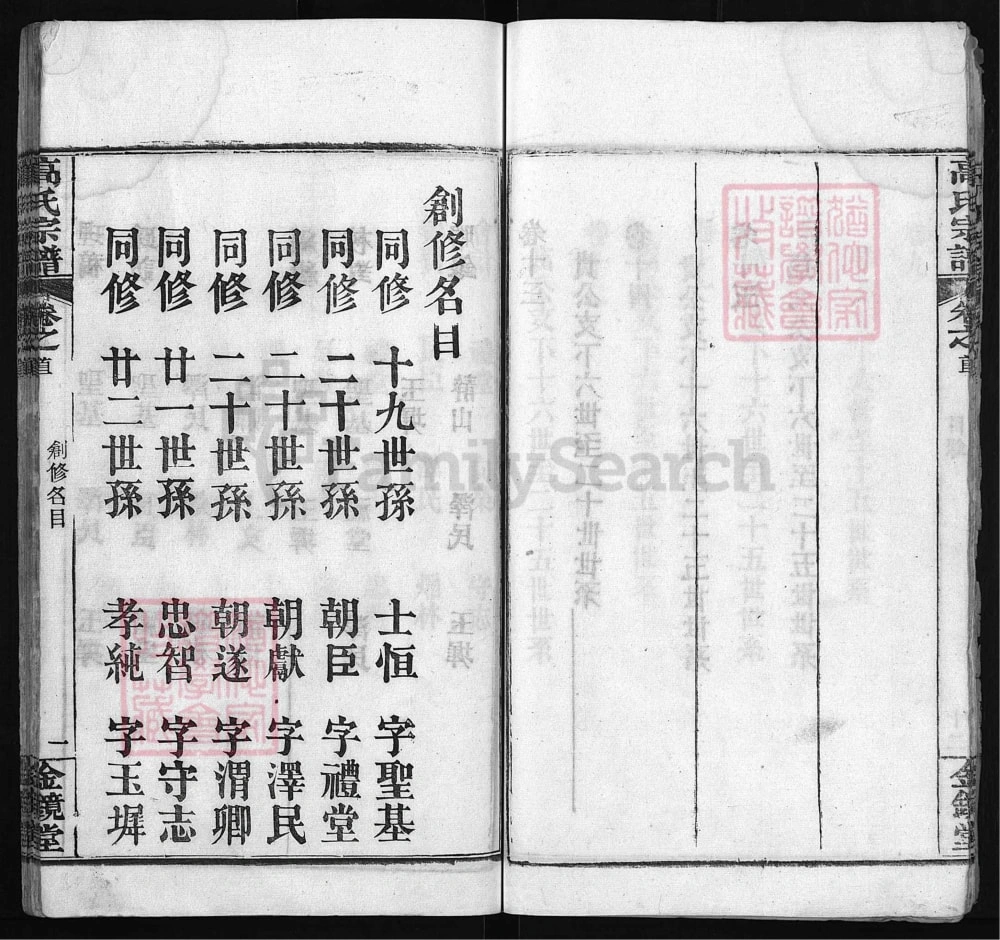 高氏宗譜 卷之首
金鏡堂
創修名目
同修 十九世孫 士恒 字聖基
同修 二十世孫 朝臣 字禮堂
同修 二十世孫 朝獻 字澤民
同修 二十世孫 朝遂 字渭卿
同修 廿一世孫 忠智 字守志
同修 廿二世孫 孝純 字玉墀
高氏宗譜 卷之首 創修名目 二 金鏡堂
FamilySearch